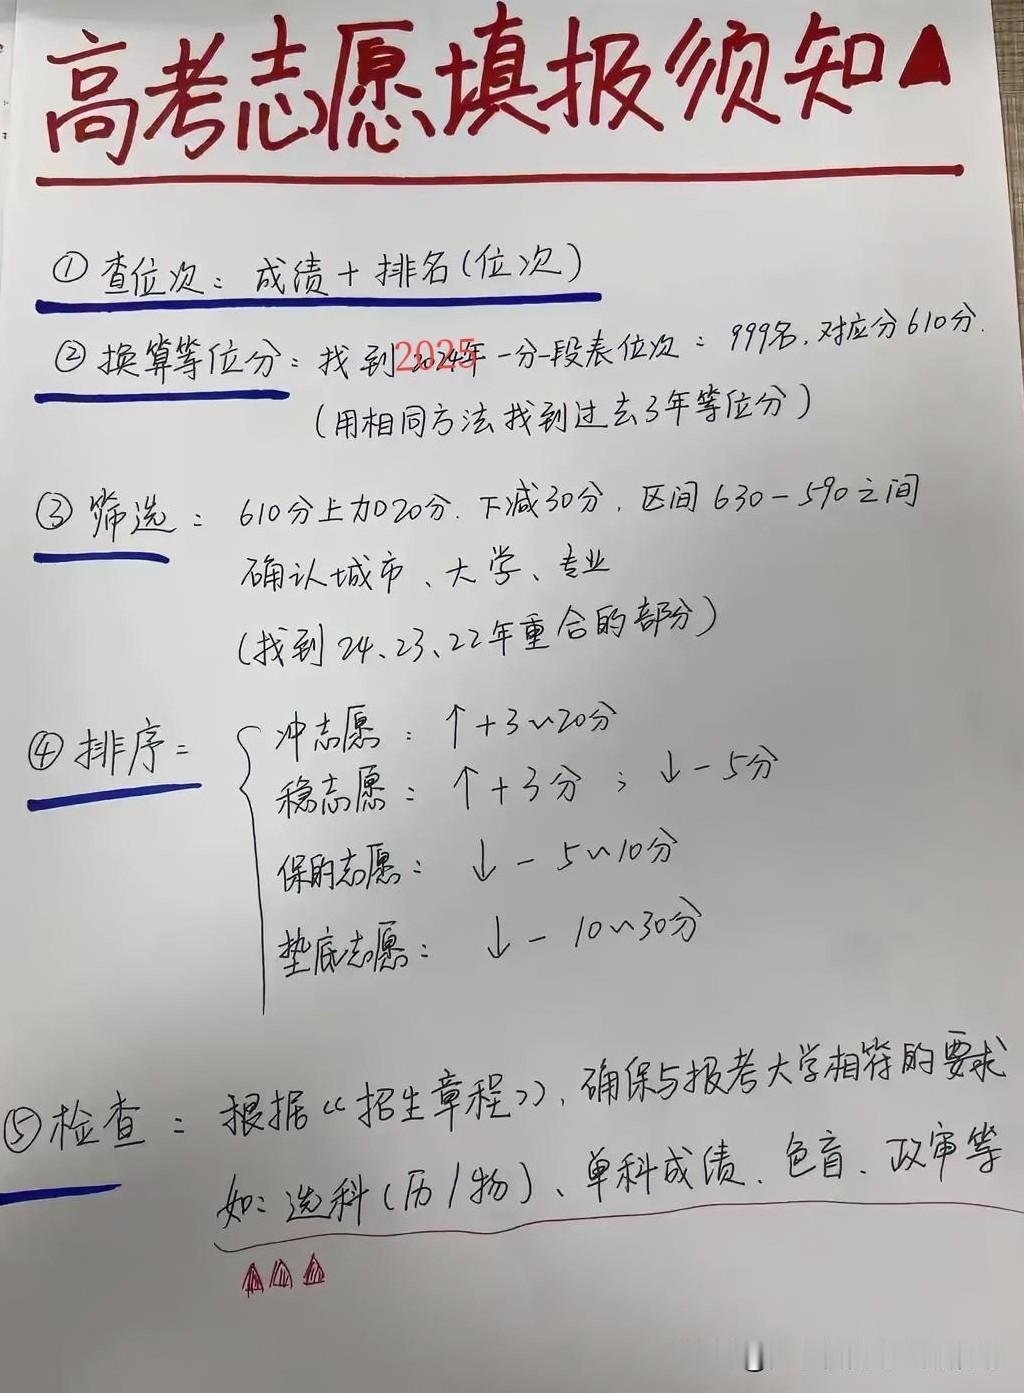 高考志愿填报须知
① 查位次：成绩+排名(位次)
② 换算等位分：找到2025年一分一段表位次：999名，对应分610分.
(用相同方法找到过去3年等位分)
③ 筛选：610分上加20分.下减30分.区间630-590之间
确认城市、大学、专业
(找到24、23、22年重合的部分)
④ 排序：
冲志愿：↑+3~20分
稳志愿：↑+3分；↓-5分
保的志愿：↓-5~10分
垫底志愿：↓-10~30分
⑤ 检查：根据《招生章程》，确保与报考大学相符的要求
如：选科(历/物)、单科成绩、色盲、政审等